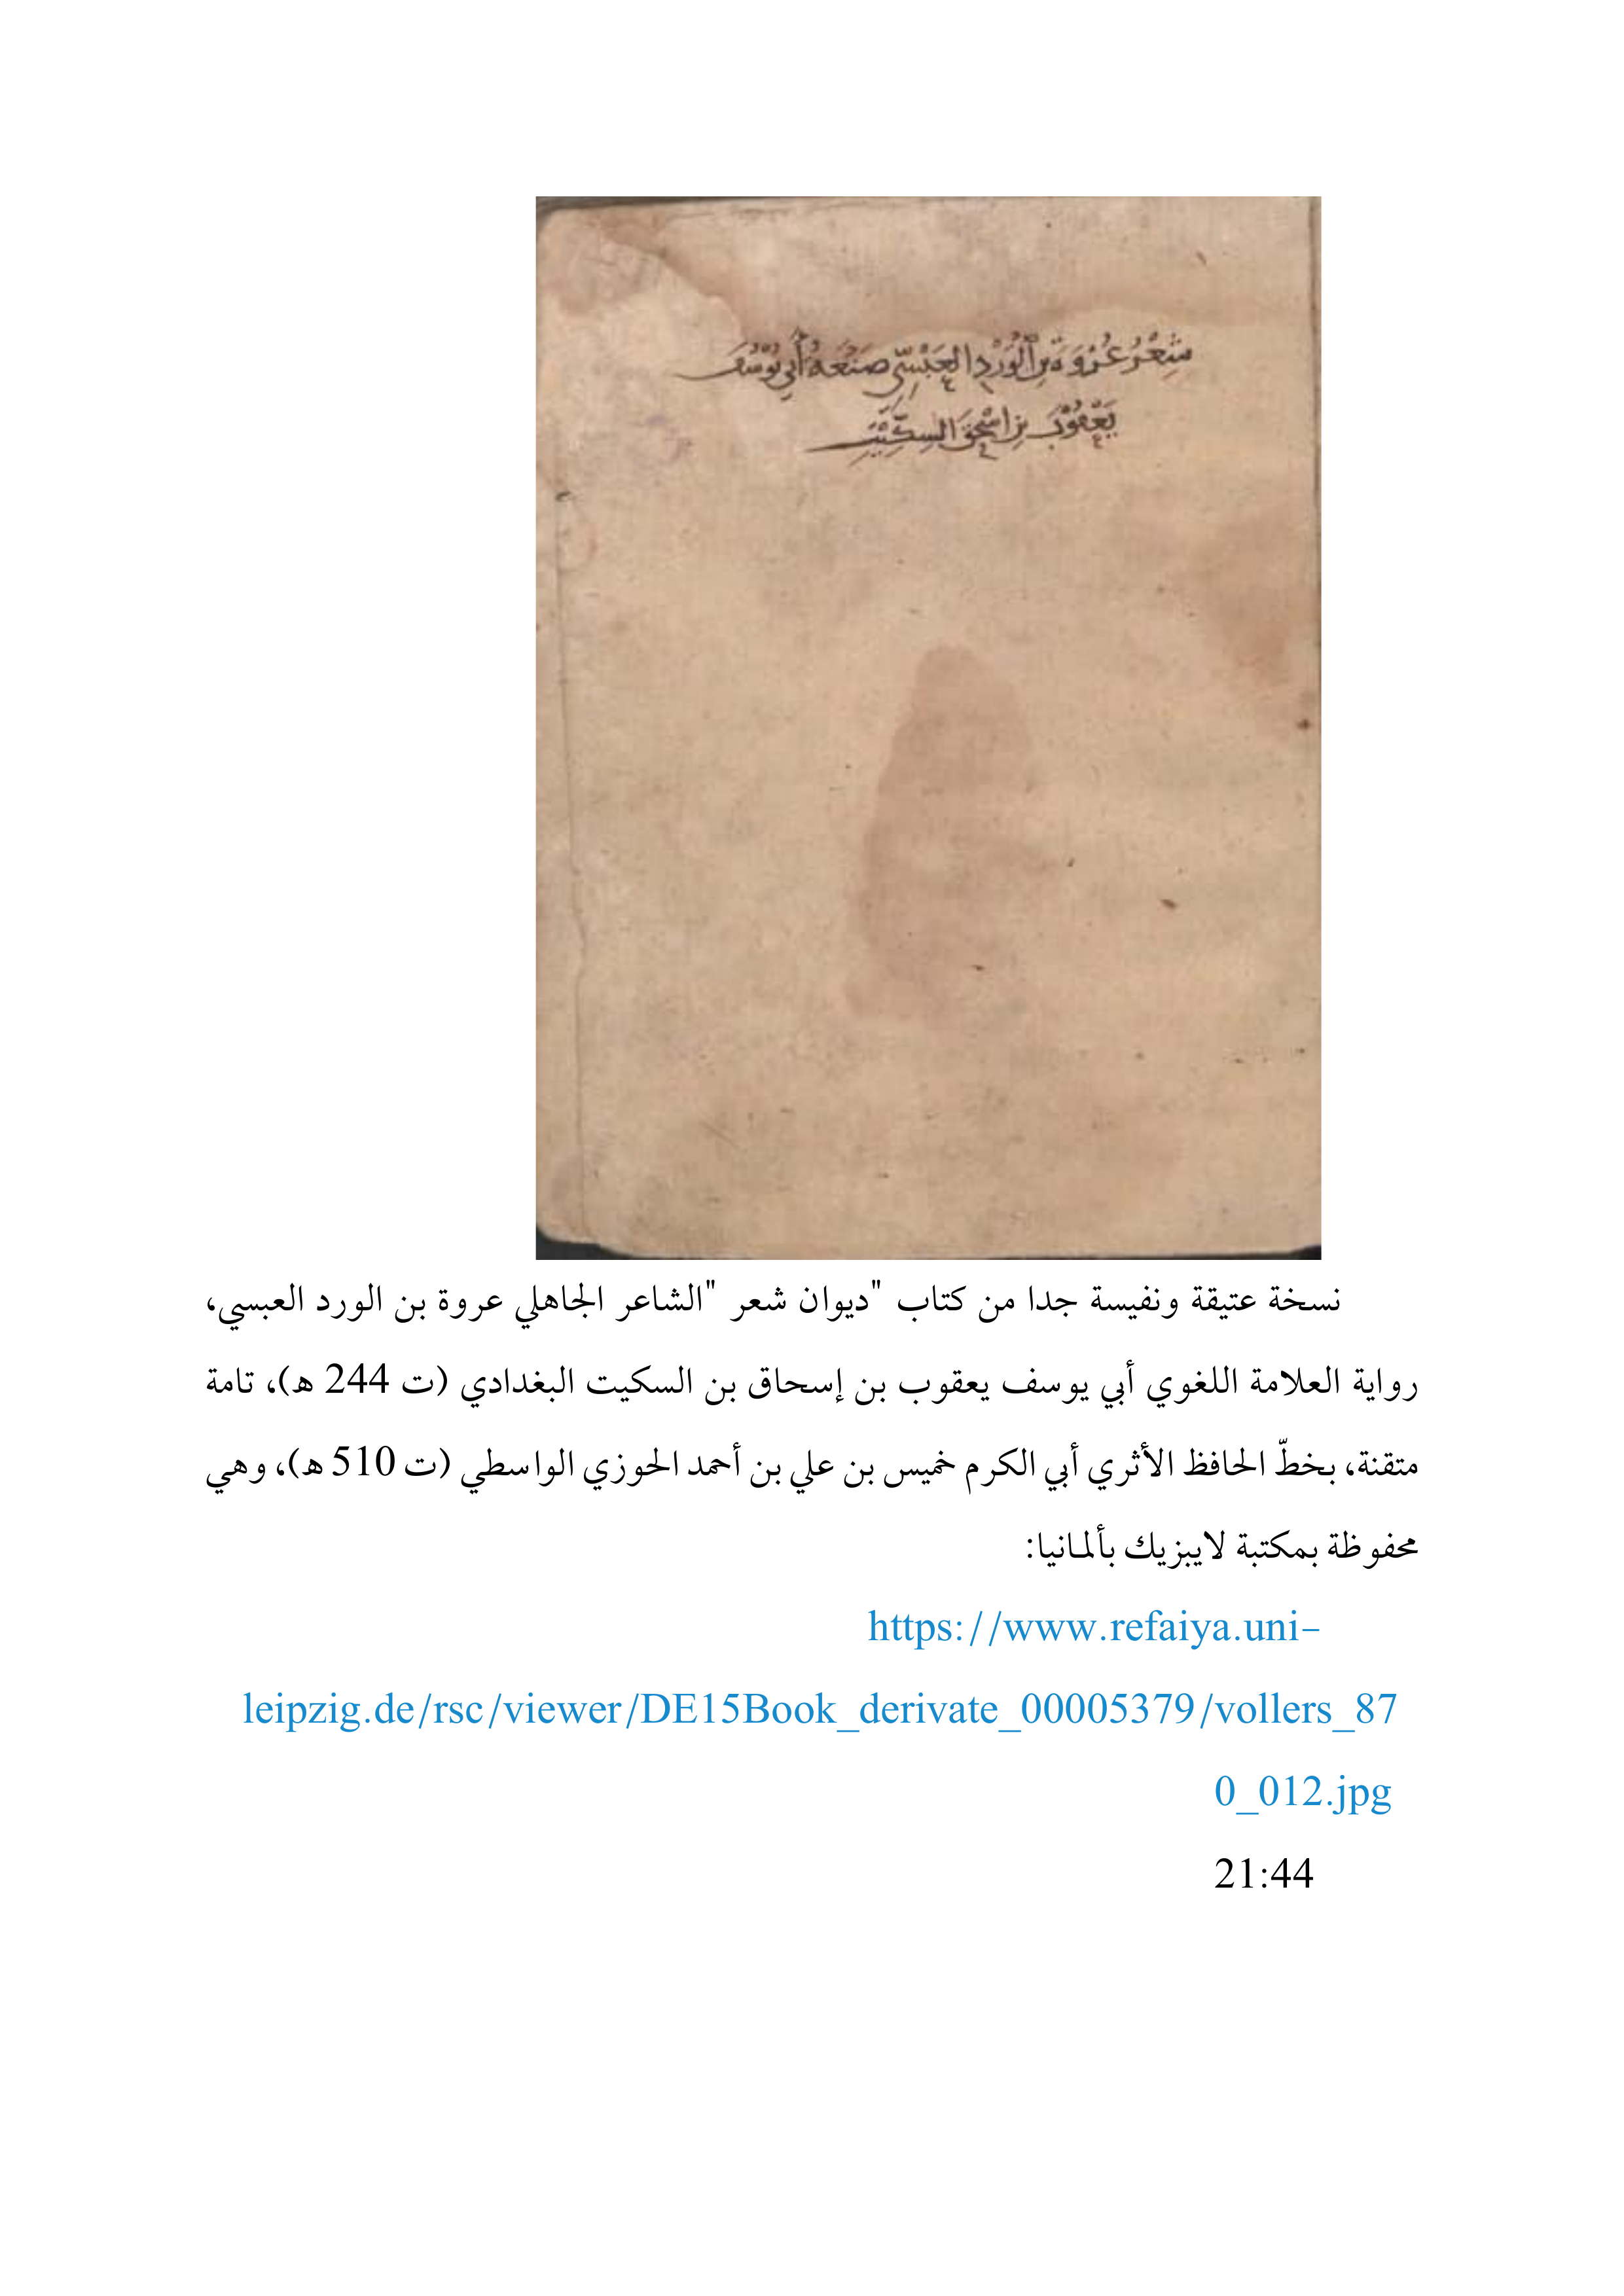 شِعْرُ عُرْوَةَ بنِ الْوَرْدِ العَبْسِيّ صَنْعَهُ أَبِي يُوسُفَ
يَعْقُوبَ بنِ اسْحٰقَ السِّكِّيْتِ
نسخة عتيقة ونفيسة جدا من كتاب "ديوان شعر "الشاعر الجاهلي عروة بن الورد العبسي،
رواية العلامة اللغوي أبي يوسف يعقوب بن إسحاق بن السكيت البغدادي (ت 244 ه)، تامة
متقنة، بخطّ الحافظ الأثري أبي الكرم خميس بن علي بن أحمد الحوزي الواسطي (ت 510 ه)، وهي
محفوظة بمكتبة لايبزيك بألمانيا:
https://www.refaiya.uni-
leipzig.de/rsc/viewer/DE15Book_derivate_00005379/vollers_87
0_012.jpg
21:44